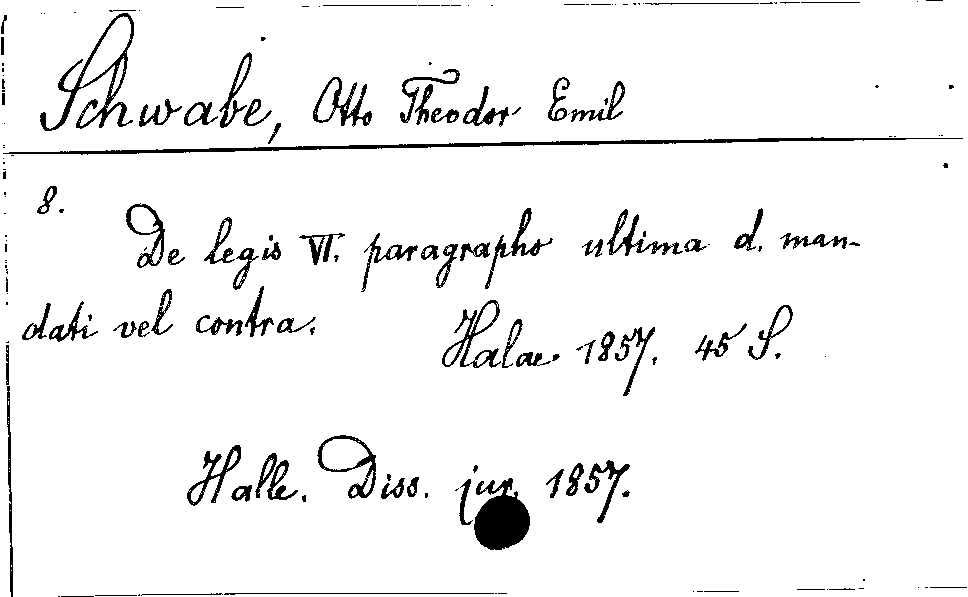 Schwabe, Otto Theodor Emil
8.
De legis VI. paragrapho ultima d. man-
dati vel contra.
Halae. 1857. 45 S.
Halle. Diss. jur. 1857.